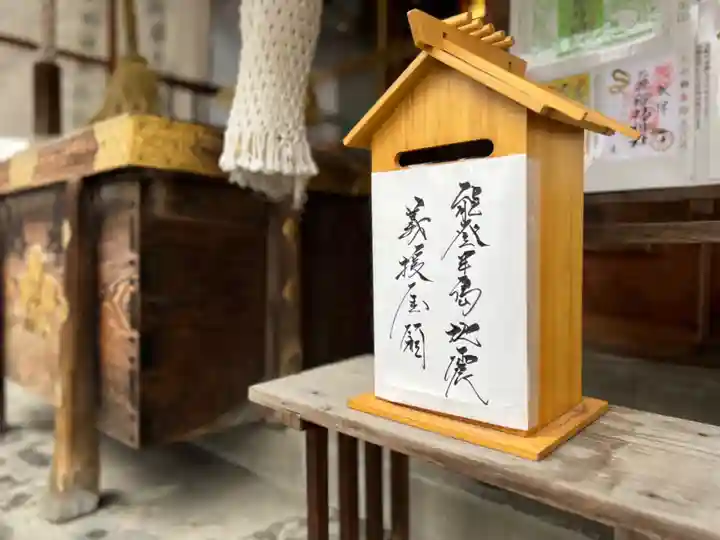 能登半島地震
義援金願